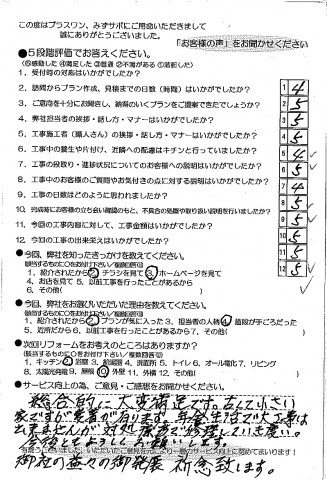 この度はプラスワン、みずサポにご用命いただきまして
誠にありがとうございました。
「お客様の声」をお聞かせください
●5段階評価でお答えください。
⑤感動した ④満足した ③普通 ②不満がある ①落胆した
1. 受付時の対応はいかがでしたか?
2. 訪問からプラン作成、見積までの日数(時間)はいかがでしたか?
3. ご意向を十分にお聞きし、納得のいくプランをご提案できたでしょうか?
4. 弊社担当者の挨拶・話し方・マナーはいかがでしたか?
5. 工事施工者(職人さん)の挨拶・話し方・マナーはいかがでしたか?
6. 工事中の養生や片付け、近隣への配慮はキチンと行っていましたか?
7. 工事の段取り・進捗状況についてのお客様への説明はいかがでしたか?
8. 工事中のお客様のご質問やお気付きの点に対する説明はいかがでしたか?
9. 工事の日数はどのように思われましたか?
10. 完成時にお客様の立ち会い確認のもと、不具合の処置や取り扱い説明を行いましたか?
11. 今回の工事内容に対して、工事金額はいかがでしたか?
12. 今回の工事の出来栄えはいかがでしたか?
1 4
2 5
3 5
4 5
5 4
6 5
7 4
8 4
9 5
10 5
11 5
12 5
●今回、弊社を知ったきっかけを教えてください。
(該当するものに〇をお付け下さい/複数回答可)
1. 紹介されたから 2. チラシを見て 3. ホームページを見て
4. お店を見て 5. 以前工事を行ったことがあるから
6. その他( )
●今回、弊社をお選びいただいた理由を教えてください。
(該当するものに〇をお付け下さい/複数回答可)
1. 紹介されたから 2. プランが気に入った 3. 担当者の人柄 4. 値段が手ごろだった
5. 近所だから 6. 以前工事を行ったことがあるから 7. その他( )
●次回リフォームをお考えのところはありますか?
(該当するものに〇をお付け下さい/複数回答可)
1. キッチン 2. 浴室 3. 給湯器 4. 洗面所 5. トイレ 6. オール電化 7. リビング
8. 太陽光発電 9. 屋根 10. 外壁 11. 外構 12. その他( )
●サービス向上の為、ご意見・ご感想をお聞かせください。
総合的に大変満足です。古くて小さい
家ですが愛着が有ります。年金生活で大工事は
出来ませんが対処療法で修理していき度い。
今後ともよろしくお願いします。
有難うございました!いただいたご意見を元により一層のサービス向上に努めてまいります!
御社の益々の御発展 祈念致します。